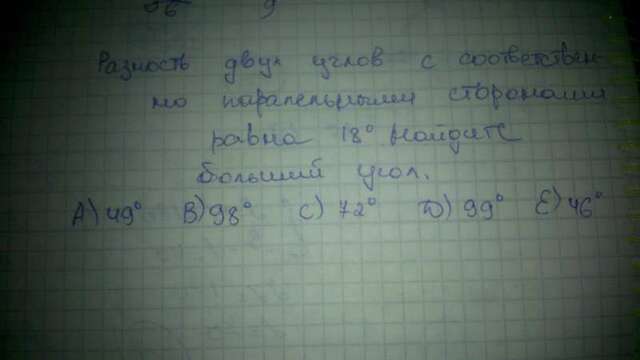 Разность двух углов с соответствен
но паралельными сторонами
равна 18° Найдите
больший угол.
A) 49° B) 98° C) 72° D) 99° E) 46°